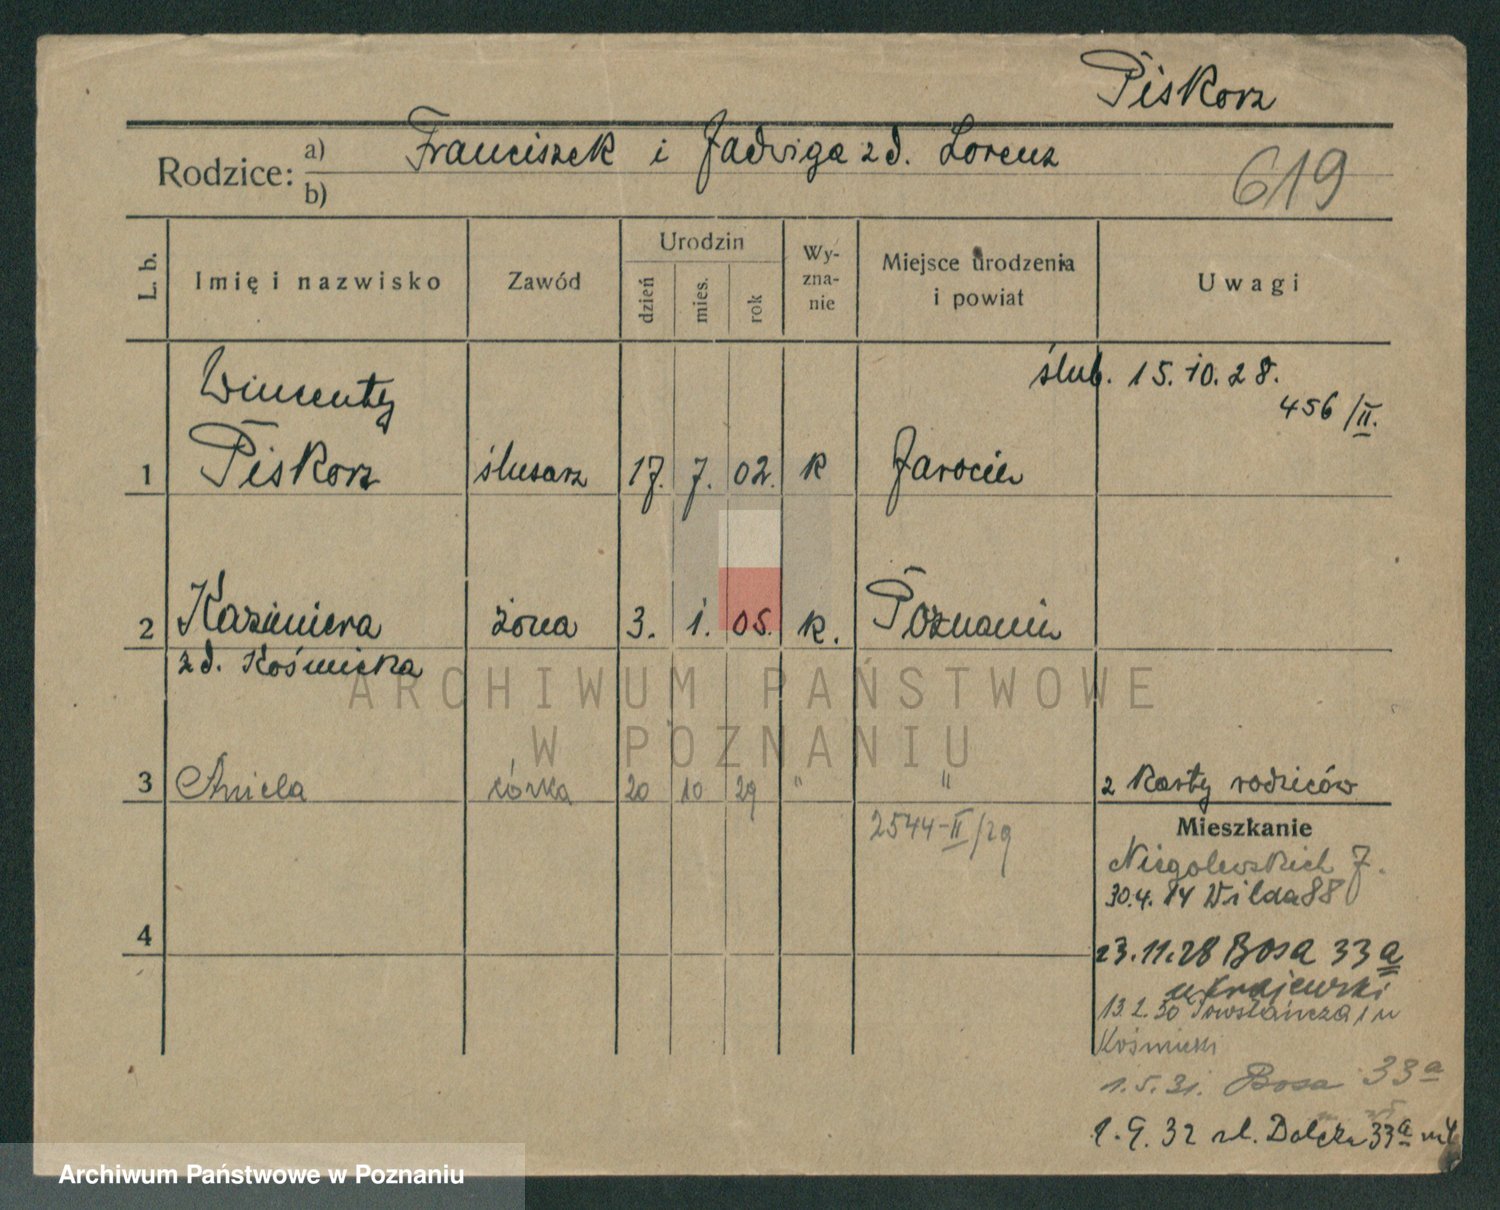 Piskorz
Rodzice: a) Franciszek i Jadwiga zd. Lorenz
b)
619
L. b. Imię i nazwisko Zawód Urodzin dzień mies. rok Wy-zna-nie Miejsce urodzenia i powiat Uwagi
ślub. 15. 10. 28.
456/II.
Wincenty
1 Piskorz ślusarz 17. 7. 02. k Jarocin
2 Kazimiera żona 3. 1. 05. k. Poznaniu
zd. Kośmicka
ARCHIWUM PAŃSTWOWE
W POZNANIU
3 Aniela córka 20 10 29 " "
2 karty rodziców
2544-II/29
Mieszkanie
Niegolewskich 7.
30.4. Wilda 88
4
23.11.28 Bosa 33a
u Krajewski
13.2.30 Powstańcza 1 u
Kośmicki
1.5.31. Bosa 33a
1.9.32 ul. 33a
Archiwum Państwowe w Poznaniu